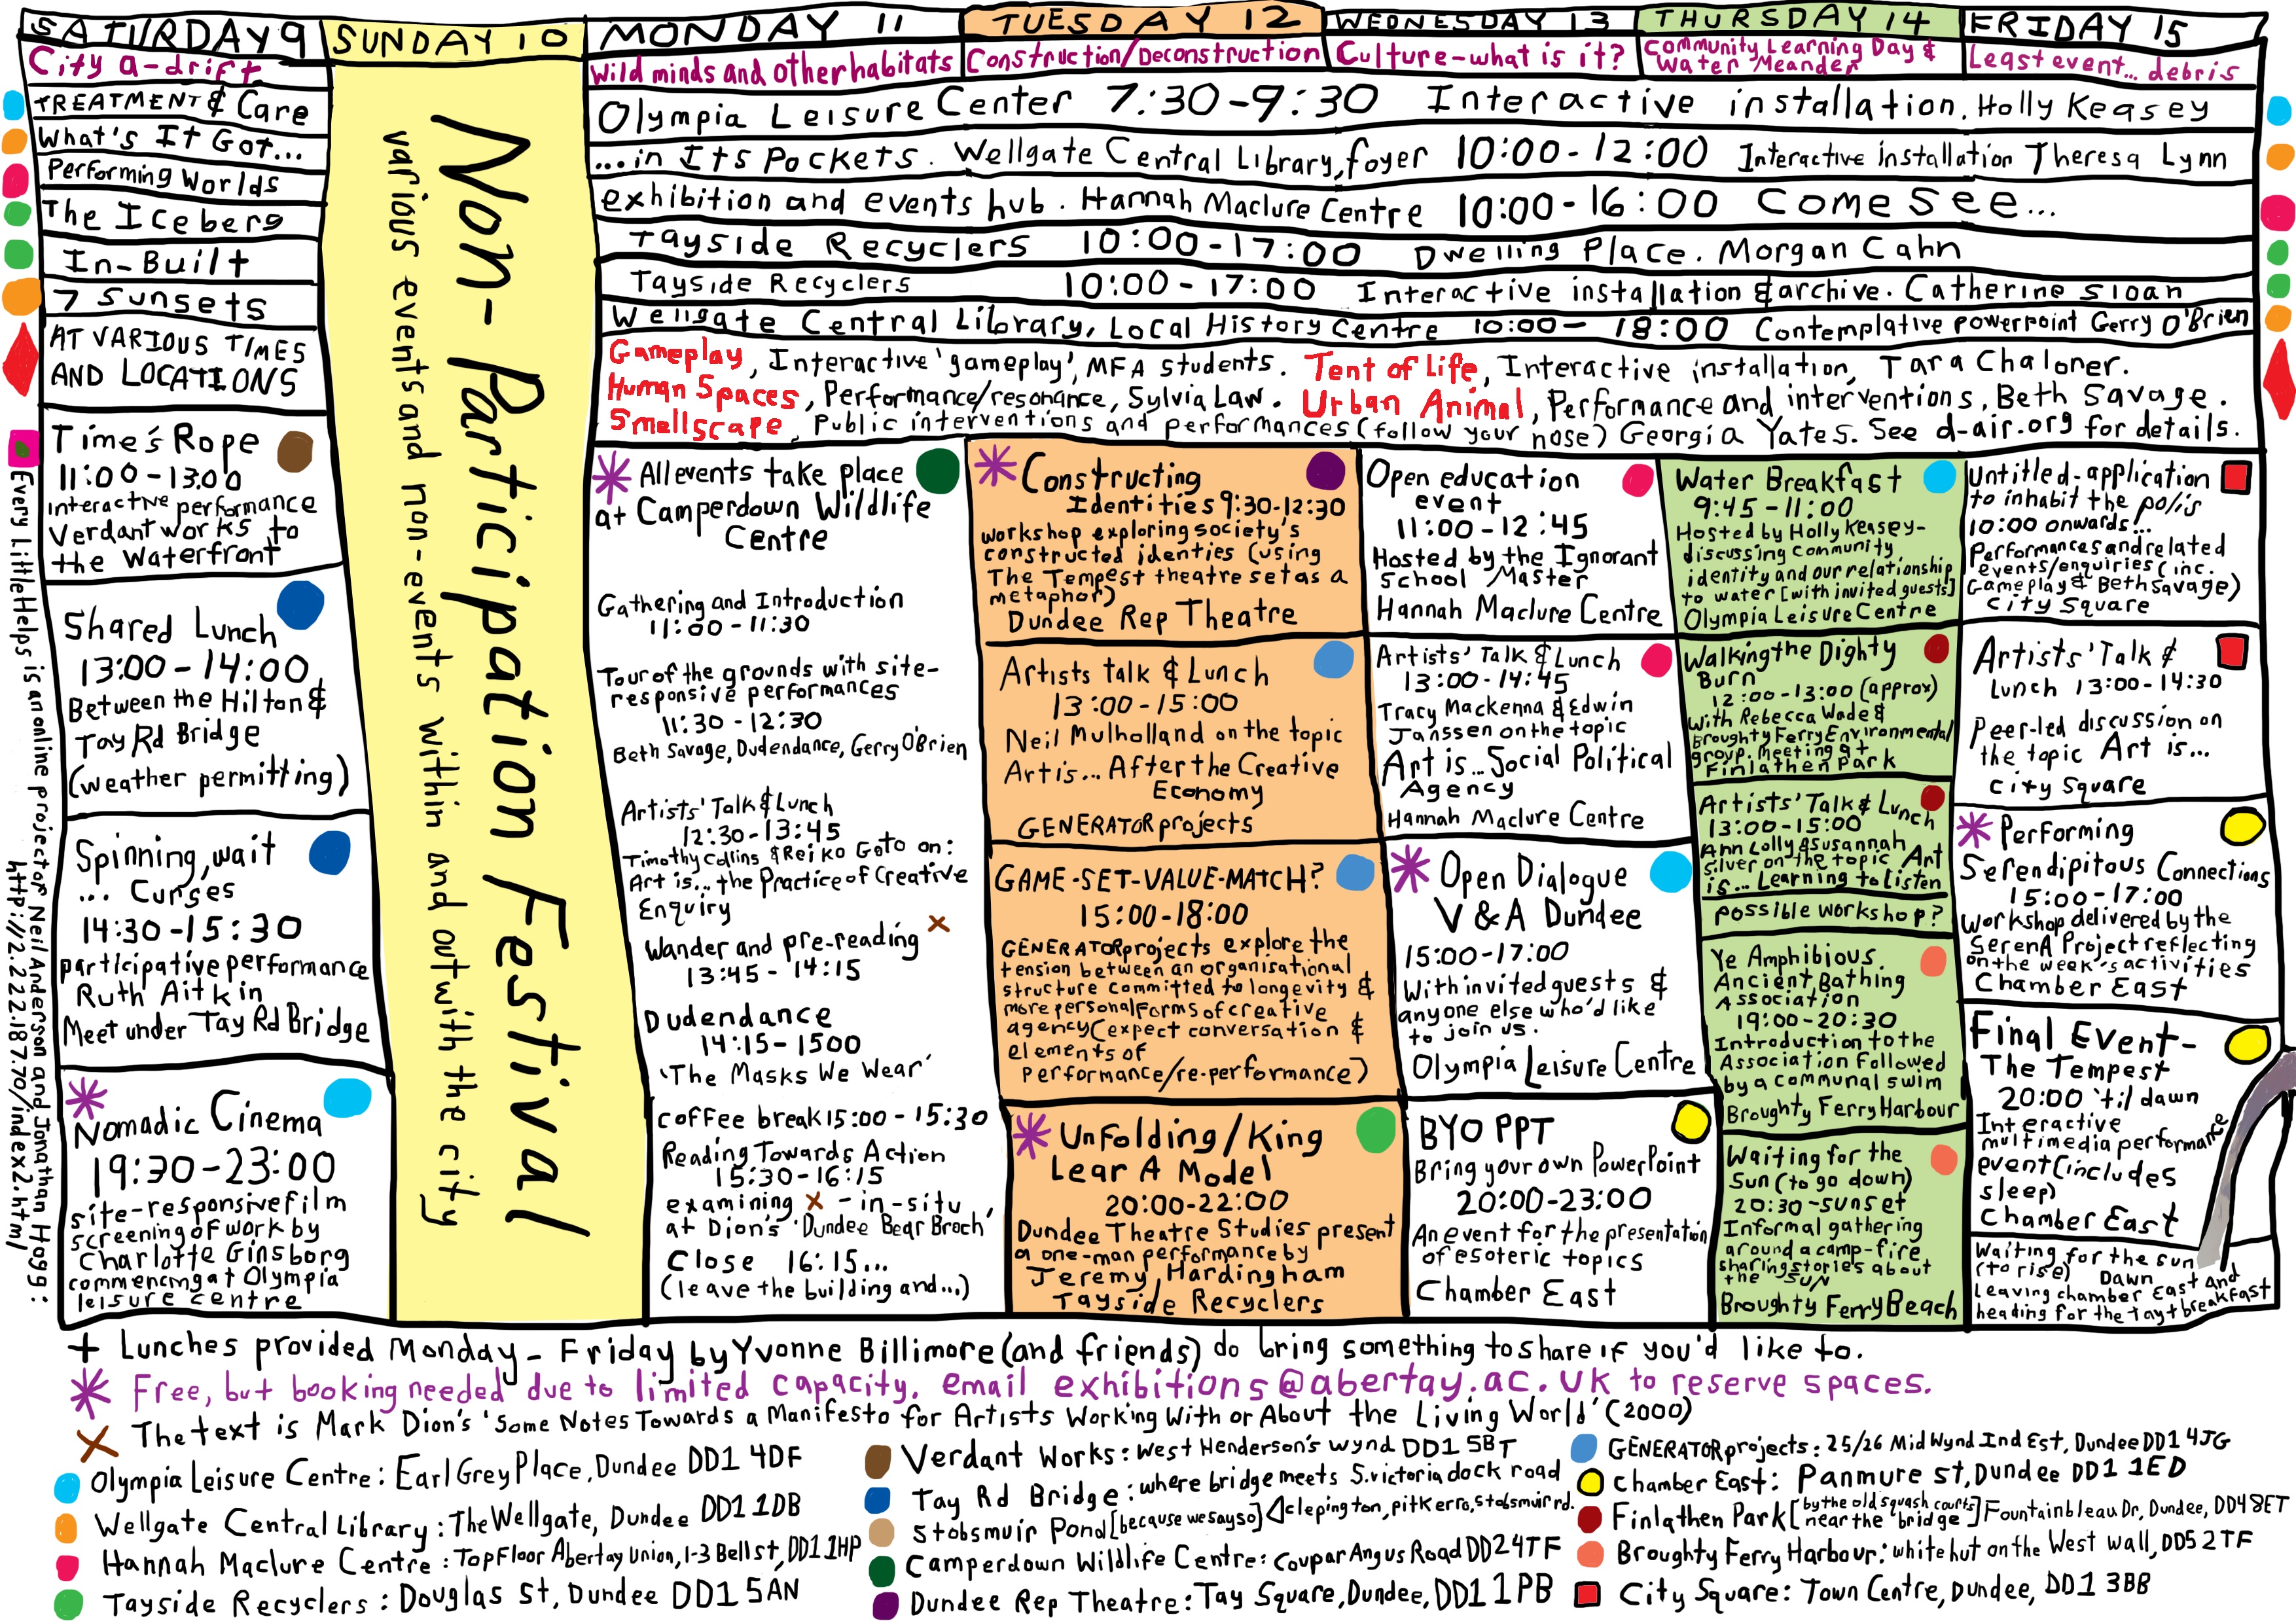 SATURDAY 9
City a-drift
TREATMENT & Care
What's It Got...
Performing Worlds
The Iceberg
In-Built
7 Sunsets
AT VARIOUS TIMES
AND LOCATIONS
Time's Rope
11:00-13.00
interactive performance
Verdant works to
the Waterfront
Shared Lunch
13:00-14:00
Between the Hilton &
Tay Rd Bridge
(weather permitting)
Spinning, wait
... Curses
14:30-15:30
participative performance
Ruth Aitkin
Meet under Tay Rd Bridge
Nomadic Cinema
19:30-23:00
site-responsive film
screening of work by
Charlotte Ginsborg
commencing at Olympia
leisure centre
Every Little Helps is an online project or Neil Anderson and Jonathan Hogg:
http://2.222.187.70/index2.html
SUNDAY 10
Non-Participation Festival
various events and non-events within and outwith the city
MONDAY 11
Wild minds and other habitats
TUESDAY 12
Construction/Deconstruction
WEDNESDAY 13
Culture-what is it?
THURSDAY 14
Community Learning Day &
Water Meander
FRIDAY 15
Least event... debris
Olympia Leisure Center 7:30-9:30 Interactive installation. Holly Keasey
...in Its Pockets. Wellgate Central Library, foyer 10:00-12:00 Interactive installation Theresa Lynn
exhibition and events hub. Hannah Maclure Centre 10:00-16:00 Come See...
Tayside Recyclers 10:00-17:00 Dwelling Place. Morgan Cahn
Tayside Recyclers 10:00-17:00 Interactive installation & archive. Catherine Sloan
Wellgate Central Library, Local History Centre 10:00-18:00 Contemplative powerpoint Gerry O'Brien
Gameplay, Interactive 'gameplay', MFA students. Tent of Life, Interactive installation, Tara Chaloner.
Human Spaces, Performance/resonance, Sylvia Law. Urban Animal, Performance and interventions, Beth Savage.
Smellscape, Public interventions and performances (follow your nose) Georgia Yates. See d-air.org for details.
All events take place
at Camperdown Wildlife
Centre
Gathering and Introduction
11:00-11:30
Tour of the grounds with site-
responsive performances
11:30-12:30
Beth Savage, Dudendance, Gerry O'Brien
Artists' Talk & Lunch
12:30-13:45
Timothy Collins & Reiko Goto on:
Art is... the Practice of Creative
Enquiry
Wander and pre-reading x
13:45-14:15
Dudendance
14:15-1500
'The Masks We Wear'
coffee break 15:00-15:30
Reading Towards Action
15:30-16:15
examining x - in-situ
at Dion's 'Dundee Bear Broch'
Close 16:15...
(leave the building and...)
Constructing
Identities 9:30-12:30
workshop exploring society's
constructed identies (using
The Tempest theatre set as a
metaphor)
Dundee Rep Theatre
Artists talk & Lunch
13:00-15:00
Neil Mulholland on the topic
Art is... After the Creative
Economy
GENERATOR projects
GAME-SET-VALUE-MATCH?
15:00-18:00
GENERATOR projects explore the
tension between an organisational
structure committed to longevity &
more personal forms of creative
agency (expect conversation &
elements of
performance/re-performance)
Unfolding/King
Lear A Model
20:00-22:00
Dundee Theatre Studies present
a one-man performance by
Jeremy Hardingham
Tayside Recyclers
Open education
event
11:00-12:45
Hosted by the Ignorant
School Master
Hannah Maclure Centre
Artists' Talk & Lunch
13:00-14:45
Tracy Mackenna & Edwin
Janssen on the topic
Art is... Social Political
Agency
Hannah Maclure Centre
Open Dialogue
V & A Dundee
15:00-17:00
With invited guests &
anyone else who'd like
to join us.
Olympia Leisure Centre
BYO PPT
Bring your own PowerPoint
20:00-23:00
An event for the presentation
of esoteric topics
Chamber East
Water Breakfast
9:45-11:00
Hosted by Holly Keasey-
discussing community
identity and our relationship
to water [with invited guests]
Olympia Leisure Centre
Walking the Dighty
Burn
12:00-13:00 (approx)
With Rebecca Wade &
Broughty Ferry Environmental
group, meeting at
Finlathen Park
Artists' Talk & Lunch
13:00-15:00
Ann Lolly & Susannah
Silver on the topic Art
is... Learning to Listen
possible workshop?
Ye Amphibious
Ancient Bathing
Association
19:00-20:30
Introduction to the
Association followed
by a communal swim
Broughty Ferry Harbour
Waiting for the
Sun (to go down)
20:30-sunset
Informal gathering
around a camp-fire
sharing stories about
the SUN
Broughty Ferry Beach
Untitled-application
to inhabit the polis
10:00 onwards...
Performances and related
events/enquiries (inc.
Gameplay & Beth Savage)
City Square
Artists' Talk &
Lunch 13:00-14:30
Peer-led discussion on
the topic Art is...
City Square
Performing
Serendipitous Connections
15:00-17:00
Workshop delivered by the
SerenA Project reflecting
on the week's activities
Chamber East
Final Event-
The Tempest
20:00 'til dawn
Interactive
multimedia performance
event (includes
sleep)
Chamber East
Waiting for the sun
(to rise) Dawn
Leaving chamber East and
heading for the Tay + breakfast
+ Lunches provided Monday-Friday by Yvonne Billimore (and friends) do bring something to share if you'd like to.
Free, but booking needed due to limited capacity. email exhibitions@abertay.ac.uk to reserve spaces.
The text is Mark Dion's 'Some Notes Towards a Manifesto for Artists Working With or About the Living World' (2000)
Olympia Leisure Centre: Earl Grey Place, Dundee DD1 4DF
Wellgate Central Library: The Wellgate, Dundee DD1 1DB
Hannah Maclure Centre: Top Floor Abertay Union, 1-3 Bell st, DD1 1HP
Tayside Recyclers: Douglas St, Dundee DD1 5AN
Verdant Works: West Henderson's Wynd DD1 5BT
Tay Rd Bridge: where bridge meets S. victoria dock road
Stobsmuir Pond [because we say so] clepington, pitkerro, stobsmuir rd.
Camperdown Wildlife Centre: Coupar Angus Road DD2 4TF
Dundee Rep Theatre: Tay Square, Dundee, DD1 1PB
GENERATOR projects: 25/26 Mid Wynd Ind Est, Dundee DD1 4JG
Chamber East: Panmure St, Dundee DD1 1ED
Finlathen Park [by the old squash courts near the 'bridge'] Fountainbleau Dr, Dundee, DD4 8ET
Broughty Ferry Harbour: white hut on the West wall, DD5 2TF
City Square: Town Centre, Dundee, DD1 3BB